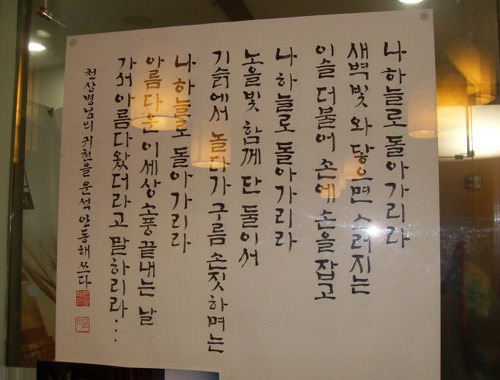 나 하늘로 돌아가리라
새벽빛 와 닿으면 스러지는
이슬 더불어 손에 손을 잡고
나 하늘로 돌아가리라
노을빛 함께 단 둘이서
기슭에서 놀다가 구름 손짓하며는
나 하늘로 돌아가리라
아름다운 이 세상 소풍 끝내는 날
가서 아름다왔더라고 말하리라...
천상병님의 귀천을 운석 안동해 쓰다